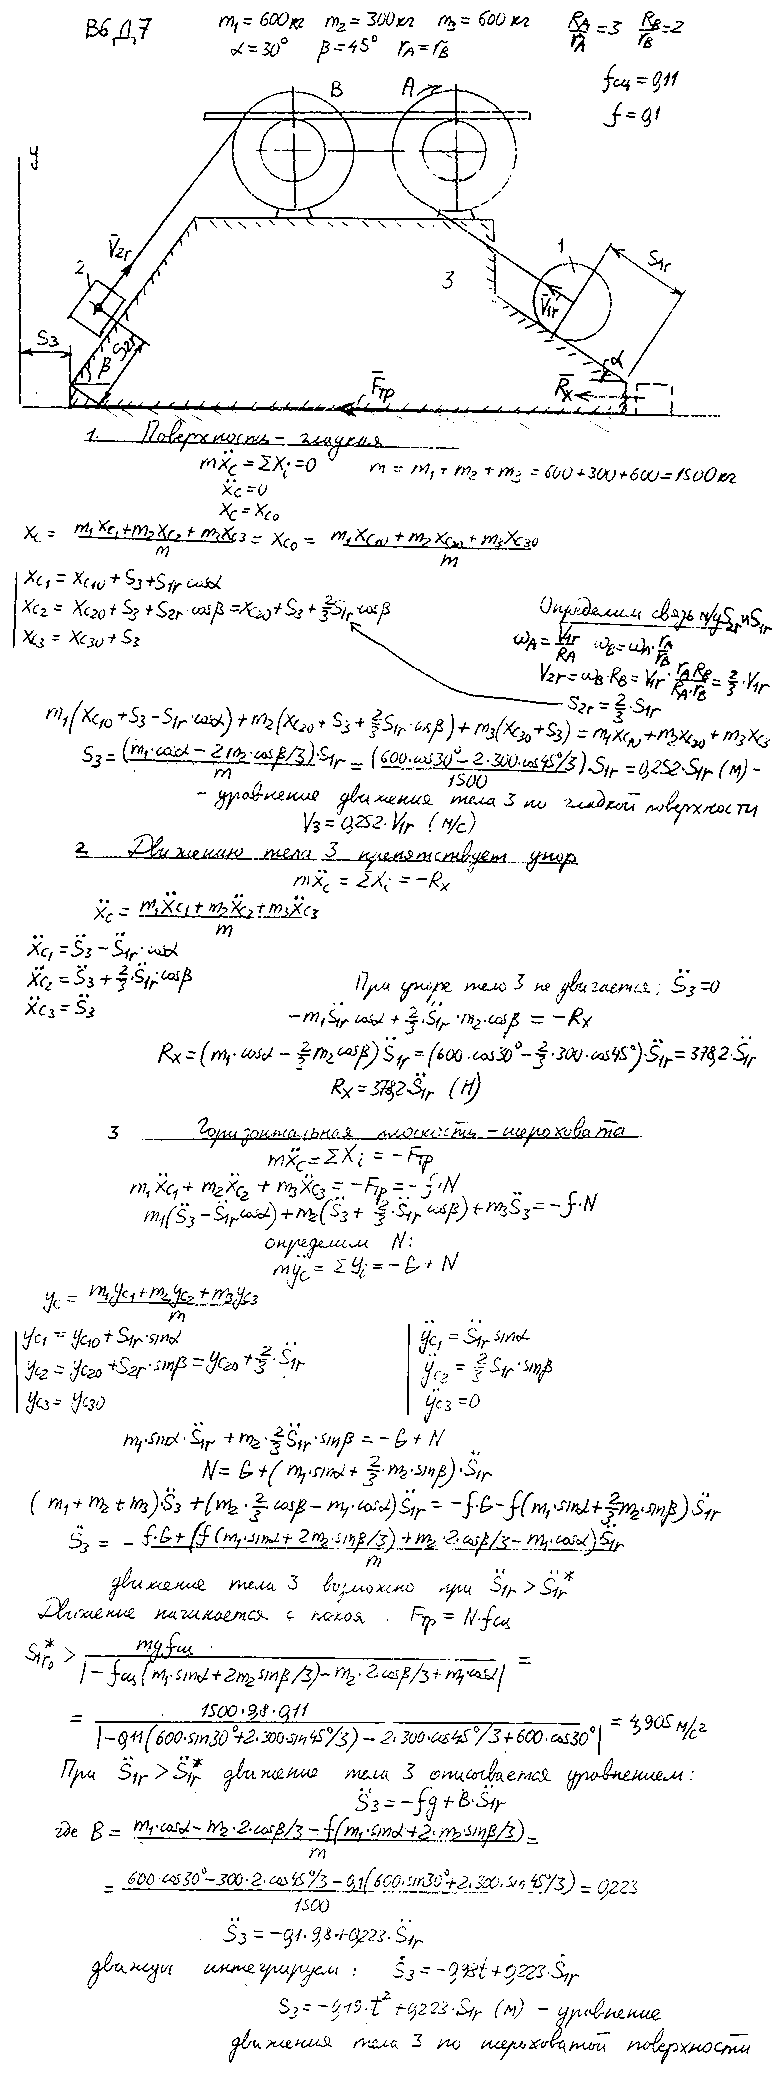 В6 Д7 m₁=600кг m₂=300кг m₃=600кг R_A/r_A=3 R_B/r_B=2
α=30° β=45° r_A=r_B
f_сц=0,11
f=0,1
B A
y
V̄₂r
2
1
S₁r
3
V̄₁r
S₃
S₂r
β
α
F̄тр
R̄x
1. Поверхность - гладкая
mẍc=ΣXi=0 m=m₁+m₂+m₃=600+300+600=1500кг
ẍc=0
xc=xc₀
xc=(m₁xc₁+m₂xc₂+m₃xc₃)/m=xc₀=(m₁xc₁₀+m₂xc₂₀+m₃xc₃₀)/m
xc₁=xc₁₀+S₃+S₁r cosα
xc₂=xc₂₀+S₃+S₂r·cosβ=xc₂₀+S₃+⅔S₁r cosβ
xc₃=xc₃₀+S₃
Определим связь м/у S₂r и S₁r
ω_A=V₁r/R_A ω_B=ω_A·r_A/r_B
V₂r=ω_B·R_B=V₁r·(r_A·R_B)/(R_A·r_B)=⅔·V₁r
S₂r=⅔·S₁r
m₁(xc₁₀+S₃-S₁r·cosα)+m₂(xc₂₀+S₃+⅔S₁r·cosβ)+m₃(xc₃₀+S₃)=m₁xc₁₀+m₂xc₂₀+m₃xc₃
S₃=(m₁·cosα-2m₂·cosβ/3)/m·S₁r=(600·cos30°-2·300·cos45°/3)/1500·S₁r=0,252·S₁r (м) -
- уравнение движения тела 3 по гладкой поверхности
V₃=0,252·V₁r (м/с)
2 Движению тела 3 препятствует упор
mẍc=ΣXi=-Rx
ẍc=(m₁ẍc₁+m₂ẍc₂+m₃ẍc₃)/m
ẍc₁=S̈₃-S̈₁r·cosα
ẍc₂=S̈₃+⅔·S̈₁r·cosβ
ẍc₃=S̈₃
При упоре тело 3 не двигается: S̈₃=0
-m₁S̈₁r cosα+⅔·S̈₁r·m₂·cosβ=-Rx
Rx=(m₁·cosα-⅔m₂cosβ)S̈₁r=(600·cos30°-⅔·300·cos45°)·S̈₁r=378,2·S̈₁r
Rx=378,2·S̈₁r (Н)
3 Горизонтальная плоскость - шероховата
mẍc=ΣXi=-Fтр
m₁ẍc₁+m₂ẍc₂+m₃ẍc₃=-Fтр=-f·N
m₁(S̈₃-S̈₁r cosα)+m₂(S̈₃+⅔·S̈₁r cosβ)+m₃S̈₃=-f·N
определим N:
mÿc=ΣYi=-G+N
yc=(m₁yc₁+m₂yc₂+m₃yc₃)/m
yc₁=yc₁₀+S₁r·sinα
yc₂=yc₂₀+S₂r·sinβ=yc₂₀+⅔·S̈₁r
yc₃=yc₃₀
ÿc₁=S̈₁r sinα
ÿc₂=⅔S₁r·sinβ
ÿc₃=0
m₁·sinα·S̈₁r+m₂·⅔S̈₁r·sinβ=-G+N
N=G+(m₁·sinα+⅔·m₂·sinβ)·S̈₁r
(m₁+m₂+m₃)·S̈₃+(m₂·⅔cosβ-m₁·cosα)S̈₁r=-f·G-f(m₁·sinα+⅔m₂·sinβ)S̈₁r
S̈₃=-(f·G+(f(m₁·sinα+2m₂·sinβ/3)+m₂·2·cosβ/3-m₁·cosα)S̈₁r)/m
движение тела 3 возможно при S̈₁r>S̈₁r*
Движение начинается с покоя. Fтр=N·f_сц
S̈₁r₀*>mgf_сц/|-f_сц(m₁·sinα+2m₂sinβ/3)-m₂·2cosβ/3+m₁cosα|=
=1500·9,8·0,11/|-0,11(600·sin30°+2·300·sin45°/3)-2·300·cos45°/3+600·cos30°|=4,905 м/с²
При S̈₁r>S̈₁r* движение тела 3 описывается уравнением:
S̈₃=-fg+B·S̈₁r
где B=(m₁·cosα-m₂·2·cosβ/3-f(m₁·sinα+2·m₂sinβ/3))/m=
=(600·cos30°-300·2·cos45°/3-0,1(600·sin30°+2·300·sin45°/3))/1500=0,223
S̈₃=-0,1·9,8+0,223·S̈₁r
дважды интегрируем: Ṡ₃=-0,98t+0,223·Ṡ₁r
S₃=-0,49·t²+0,223·S₁r (м) - уравнение
движения тела 3 по шероховатой поверхности